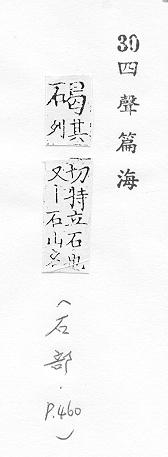 39 四聲篇海
碣 其列
切特立石也
又丨石山名
(石部·P.460)